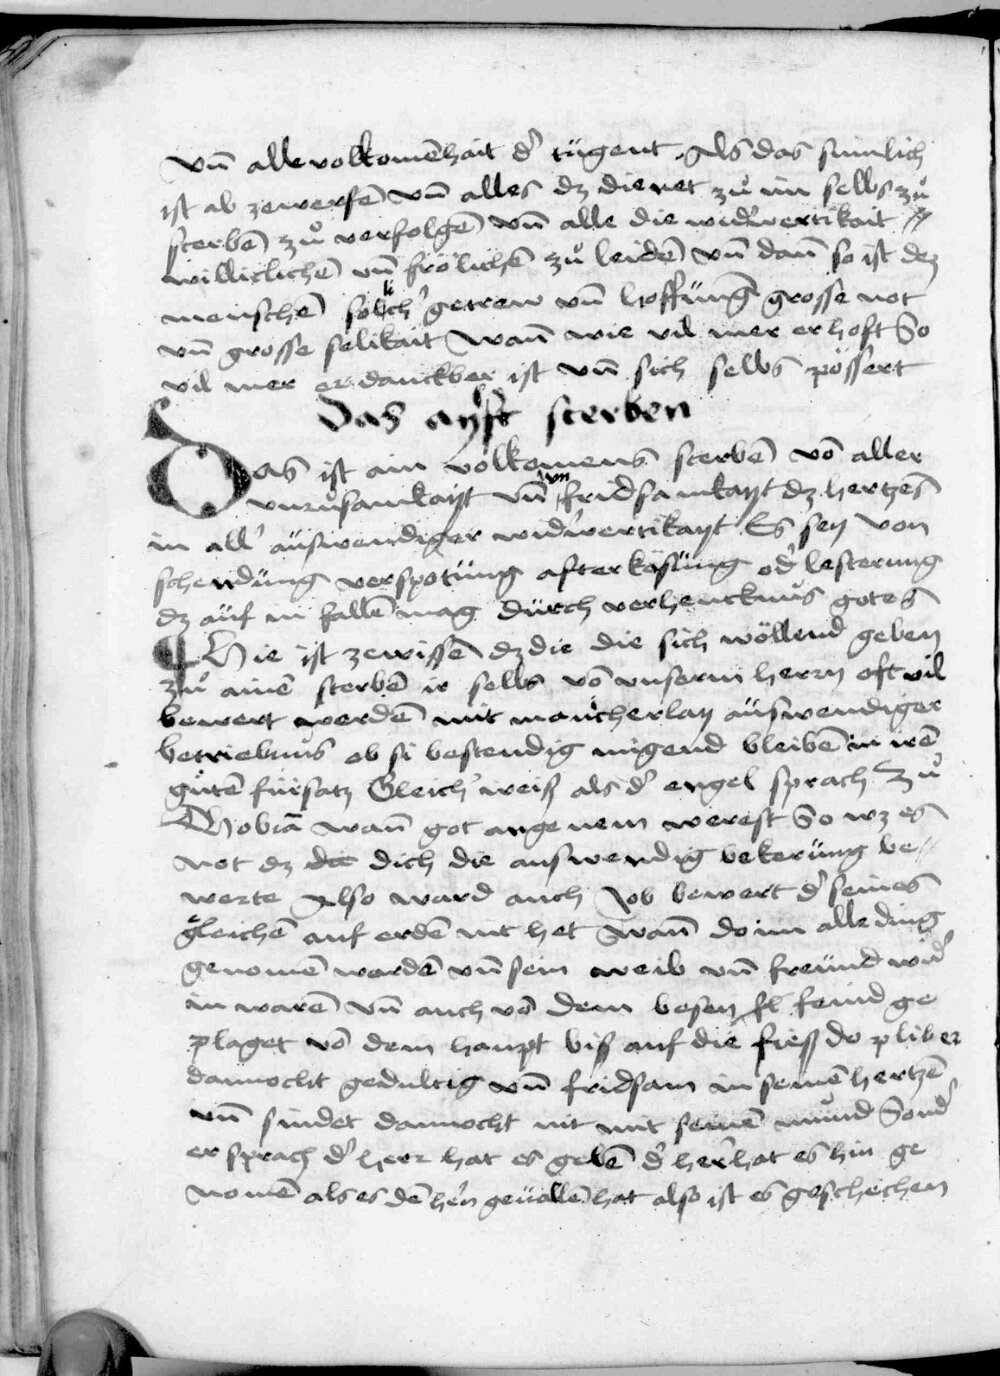 vn̄ alle volkomēhait d' tugent Als das sinnlich
ist ab zewerfē vn̄ alles dz dienet zů im selbs zů
sterbē zů verfolgē vn̄ alle die wid'wertikait
williclichē vn̄ frölichē zů leidē vn̄ dan̄ so ist dez
menschē solch' getrew vn̄ hoffüng grosse not
vn̄ grosse selikait Wan̄ wie vil mer er hoft So
vil mer er danckber ist vn̄ sich selbs pössert
Das ayꝉft sterben
Das ist ain volkomens sterbē vō aller
vnrůsamkayt vn̄ vn fridsamkayt dz hertzens
in all' auswendiger wid'wertikayt Es sey von
schendüng verspotüng afterkösüng od' lesterung
dz auf in fallē mag dürch verhencknus gotes
¶ Hie ist zewissē dz die die sich wöllend geben
zů ainē sterbē ir selbs vō vnserm herrn oft vil
bewert werdē mit mancherlay auswendiger
betriebnus ob si bestendig mügend bleibē in irē
gůtē fürsatz Gleich' weiß als d' engel sprach Zů
Thobiā wan̄ got angenem werest So wz es
not dz dich die auswendig bekerüng be⸗
werte Also ward auch Job bewert d' seines
gleichē auf erdē nit het Wan̄ do im alle ding
genomē wardē vn̄ sein weib vn̄ freünd wid'
in warē vn̄ auch vō dem besen feind ge
plaget vō dem haupt biß auf die fieß do plib er
dannocht gedultig vn̄ fridsam in seinē hertzē
vn̄ sündet dannocht nit mit seinē mund Sond'
er sprach d' herr hat es gebē d' herr hat es hin ge
nomē als es dē hern geuallē hat also ist es geschechen